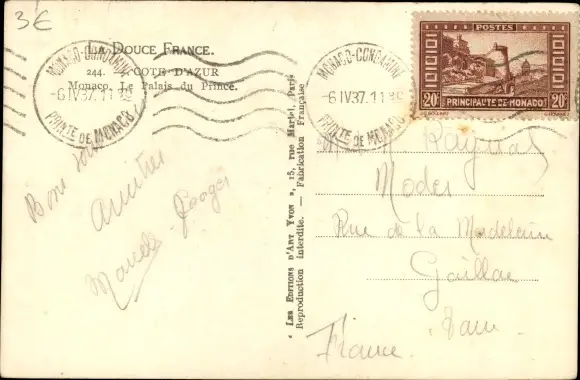 3€
LA DOUCE FRANCE.
244. - COTE D'AZUR
Monaco. Le Palais du Prince.
MONACO-CONDAMINE
-6 IV 37. 11
PRINTÉ DE MONACO
MONACO-CONDAMINE
-6 IV 37. 11
PRINTÉ DE MONACO
POSTES
20c 20c
PRINCIPAUTE-DE-MONACO
Bons
amitiés
Marcelle
« LES EDITIONS D'ART YVON », 15, rue Martel, Paris
Reproduction interdite. — Fabrication Française
Raynal
Modes
Rue de la Madeleine
Gaillac
Tarn
France